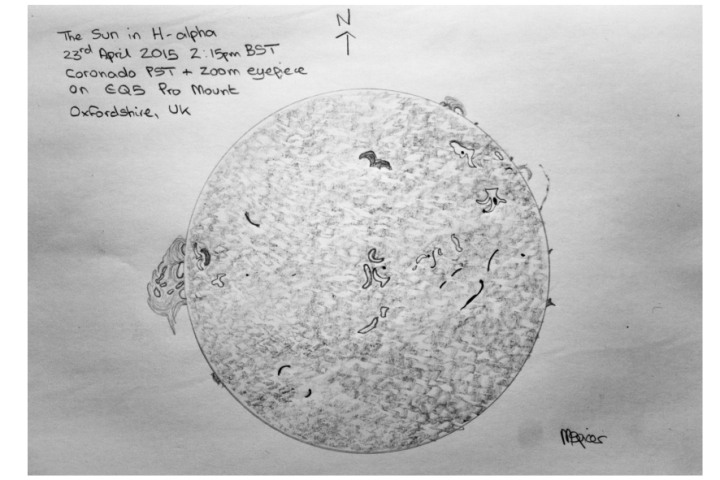 The Sun in H-alpha
23rd April 2015 2:15pm BST
Coronado PST + zoom eyepiece
on EQ5 Pro Mount
Oxfordshire, UK
N